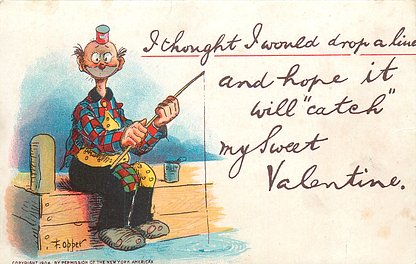 I thought I would drop a line
and hope it
will "catch"
my Sweet
Valentine.
F. Opper
COPYRIGHT 1904 · BY PERMISSION OF THE NEW YORK AMERICAN